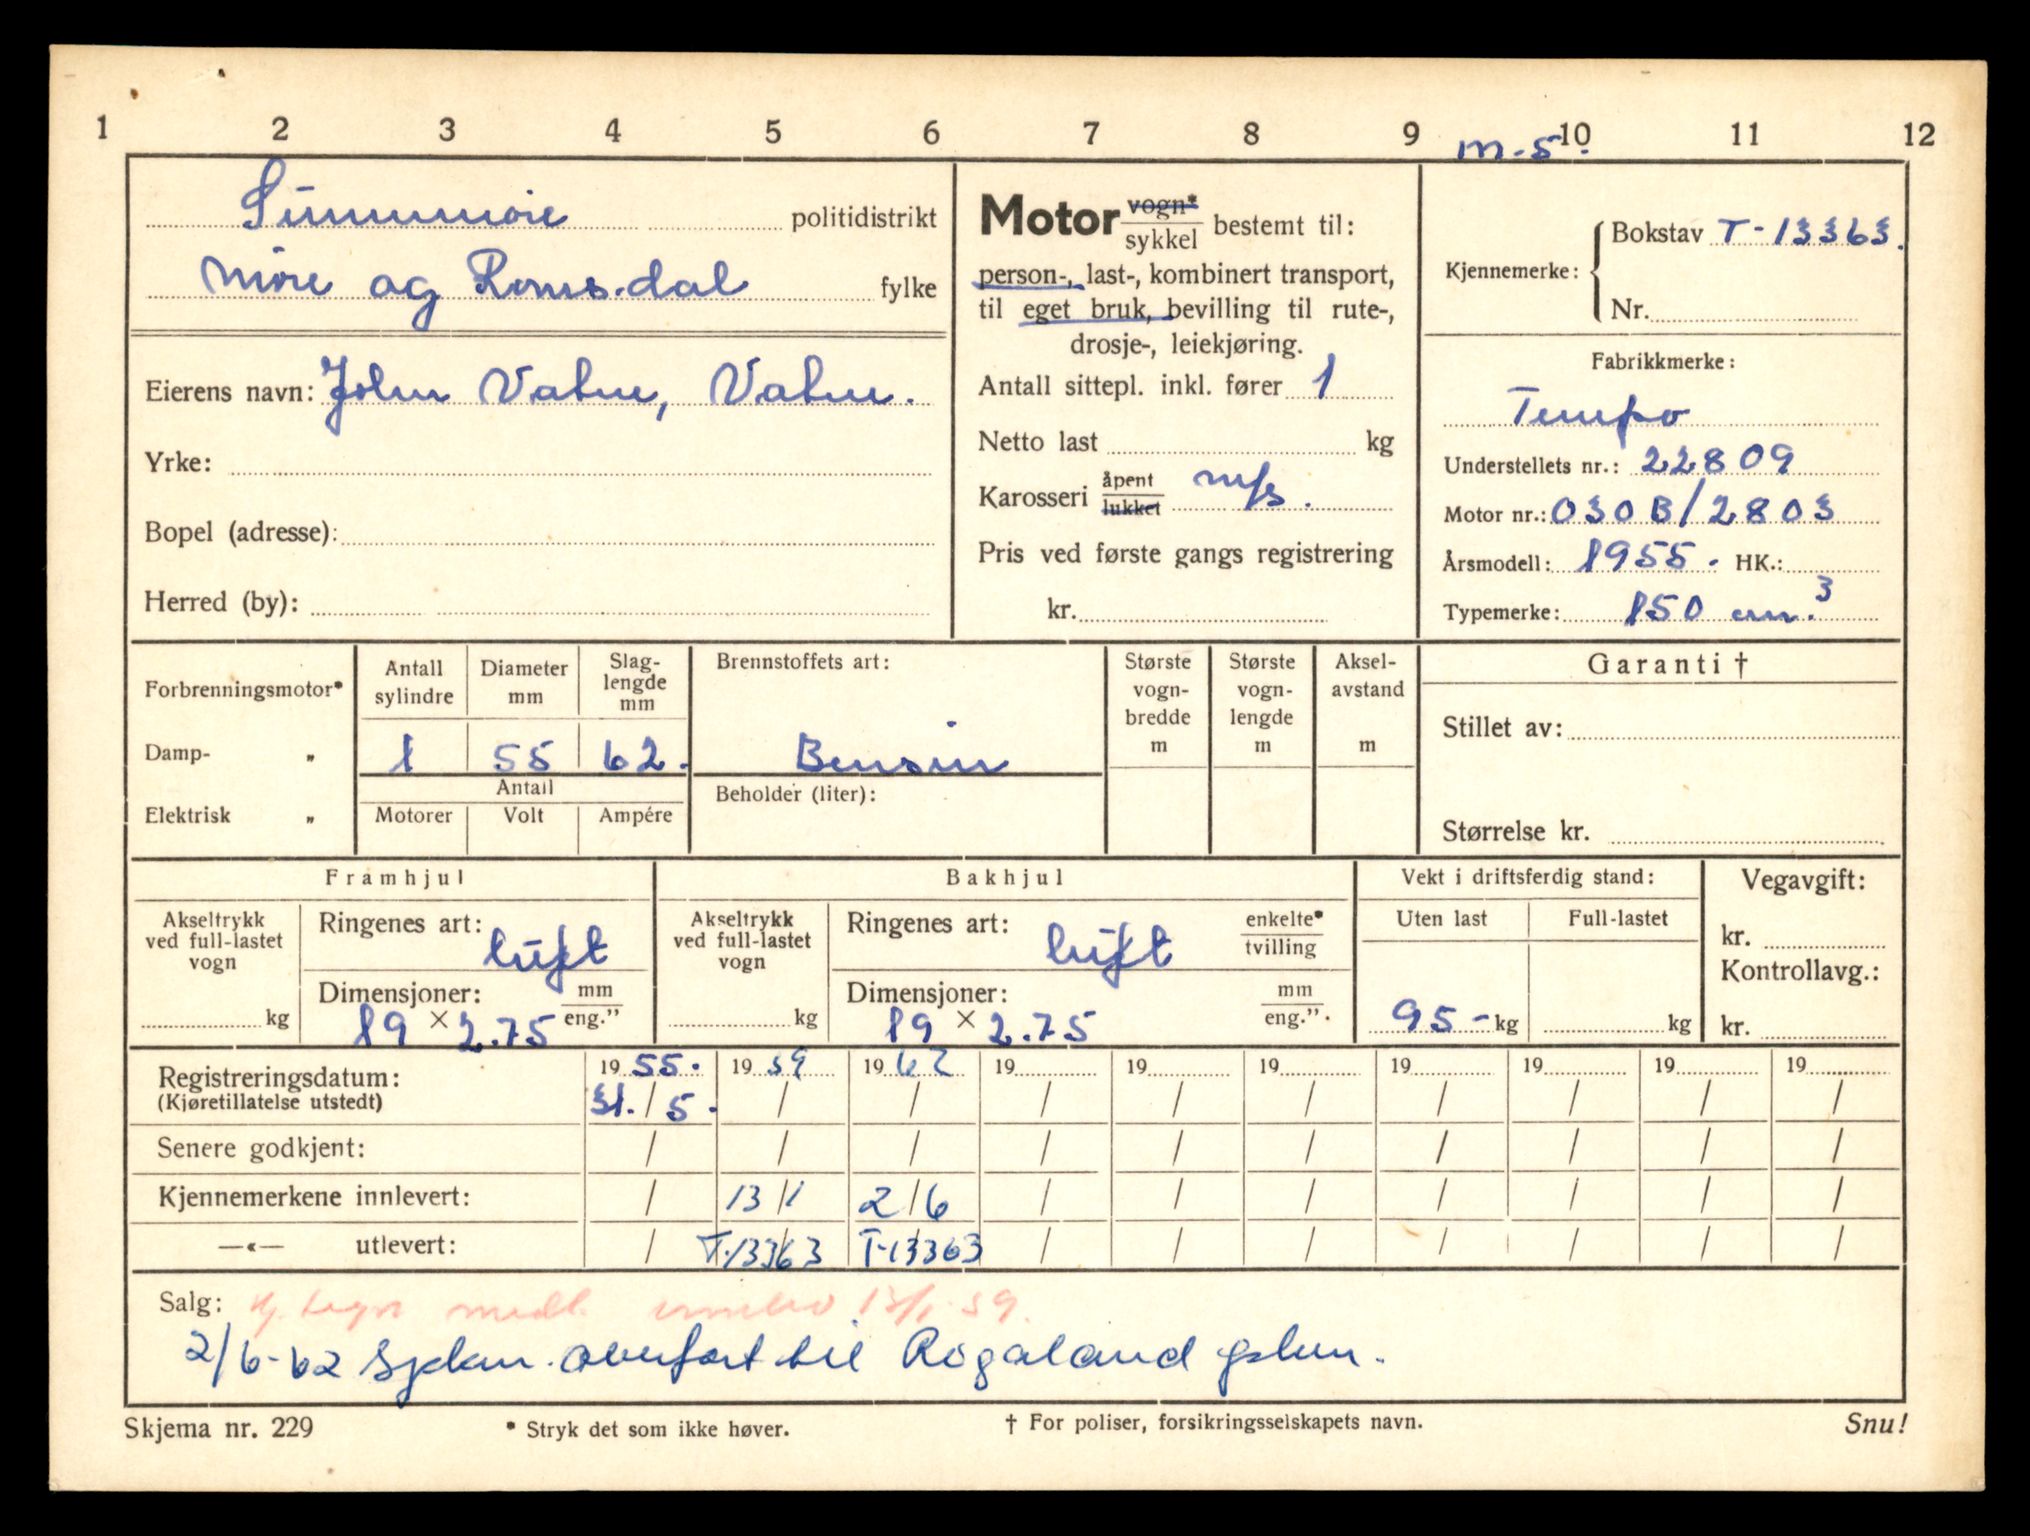 1 2 3 4 5 6 7 8 9 10 11 12
m.s.
Sunnmøre politidistrikt
Møre og Romsdal fylke
Eierens navn: John Vatne, Vatne.
Yrke:
Bopel (adresse):
Herred (by):
Motor vogn* / sykkel bestemt til:
person-, last-, kombinert transport,
til eget bruk, bevilling til rute-,
drosje-, leiekjøring.
Antall sittepl. inkl. fører 1
Netto last kg
Karosseri åpent / lukket m/s.
Pris ved første gangs registrering
kr.
Kjennemerke: Bokstav T-13363.
Nr.
Fabrikkmerke:
Tempo
Understellets nr.: 22809
Motor nr.: 030B/2803
Årsmodell: 1955. HK.:
Typemerke: 150 cm.3
Forbrenningsmotor*
Damp- „
Elektrisk „
Antall sylindre
Diameter mm
Slag-
lengde
mm
1 55 62.
Antall
Motorer Volt Ampére
Brennstoffets art:
Bensin
Beholder (liter):
Største
vogn-
bredde
m
Største
vogn-
lengde
m
Aksel-
avstand
m
Garanti †
Stillet av:
Størrelse kr.
Framhjul
Akseltrykk
ved full-lastet
vogn
kg
Ringenes art:
luft
Dimensjoner: mm / eng."
19 × 2.75
Bakhjul
Akseltrykk
ved full-lastet
vogn
kg
Ringenes art: enkelte* / tvilling
luft
Dimensjoner: mm / eng.".
19 × 2.75
Vekt i driftsferdig stand:
Uten last Full-lastet
95- kg kg
Vegavgift:
kr.
Kontrollavg.:
kr.
Registreringsdatum: 19 55. 19 59 19 62 19 19 19 19 19 19 19
(Kjøretillatelse utstedt) 31. / 5. / / / / / / / / /
Senere godkjent: / / / / / / / / / /
Kjennemerkene innlevert: / 13 / 1 2 / 6 / / / / / / /
—«— utlevert: / T.13363 T-13363 / / / / / / /
Salg: Kj. tegn medl. innlev 13/1-59.
2/6-62 sykken. overført til Rogaland fylken.
Skjema nr. 229
* Stryk det som ikke høver.
† For poliser, forsikringsselskapets navn.
Snu!